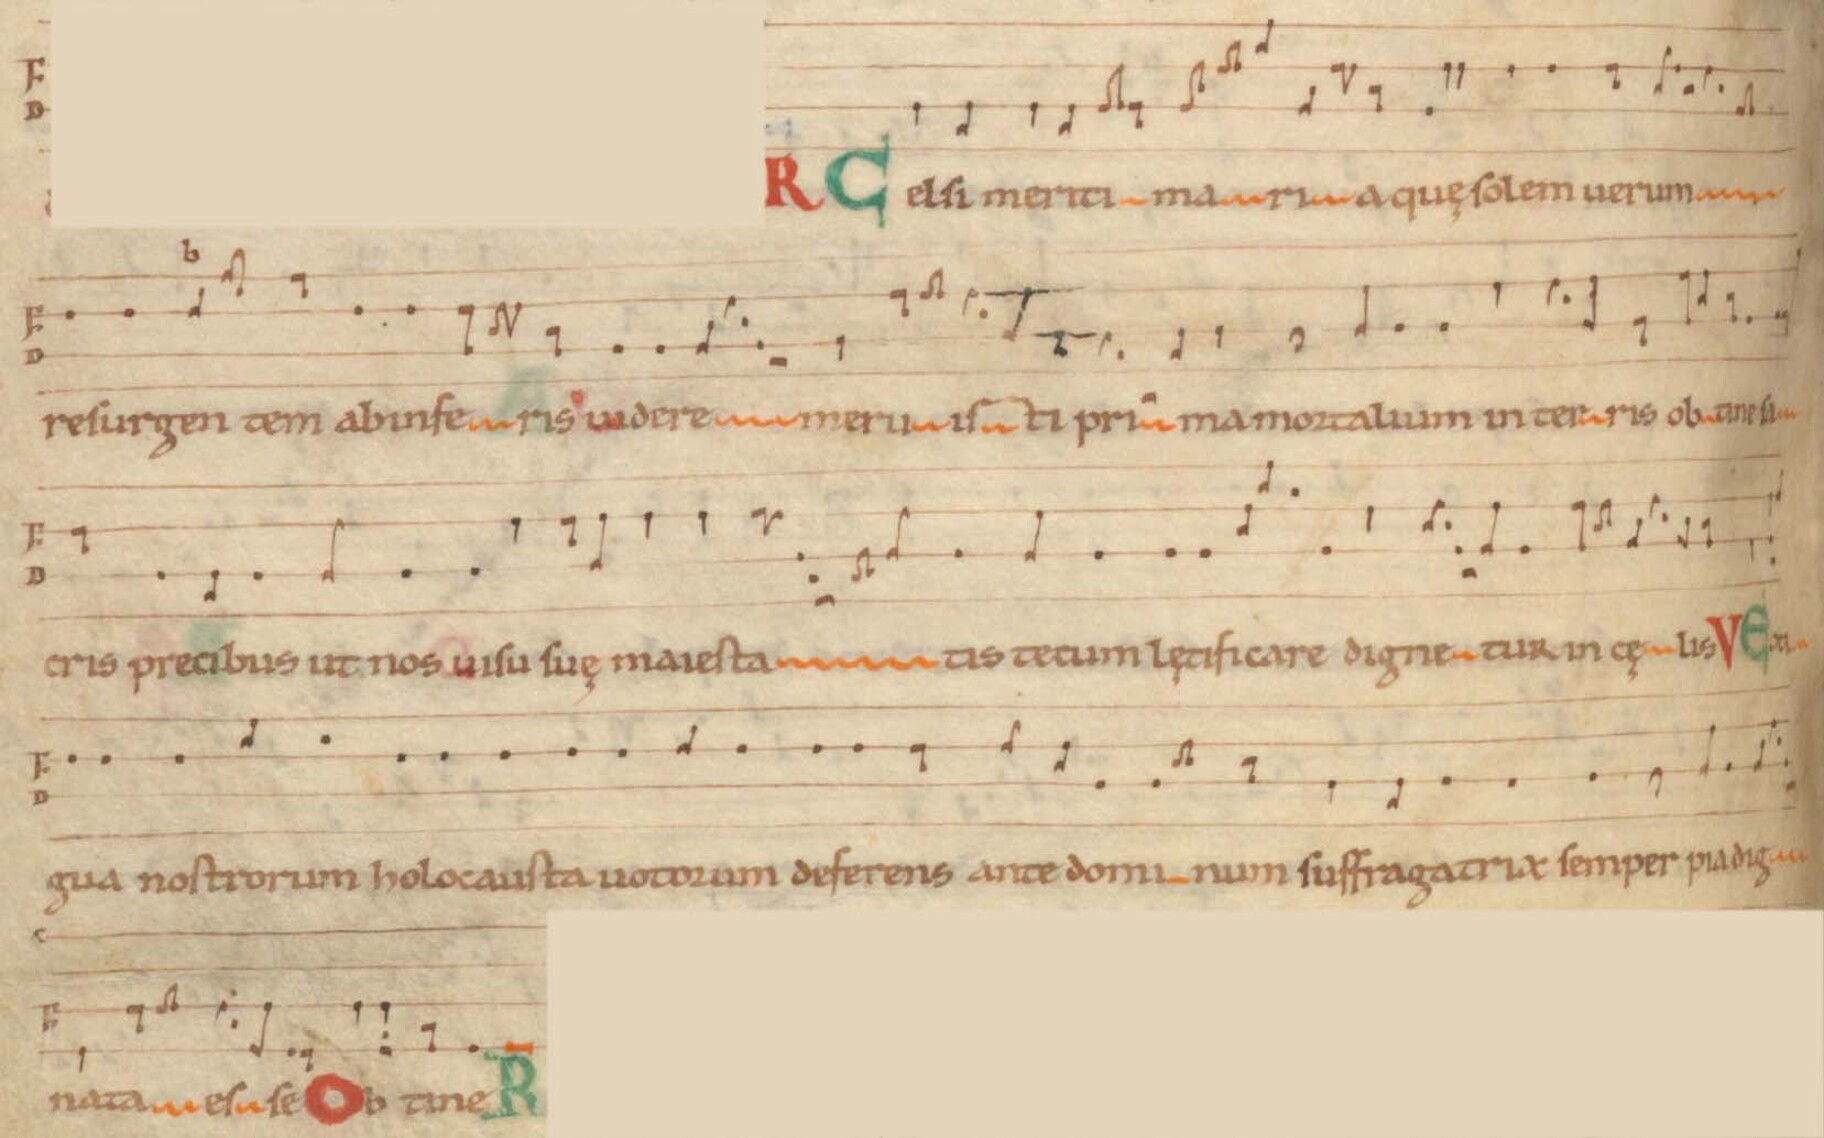 F
D
R Celsi meriti maria quę solem uerum
b
F
D
resurgen tem ab infe ris uidere meru isti pri ma mortalium in ter ris ob tine sa
F
D
cris precibus ut nos uisu suę maiesta tis tecum lętificare digne tur in cę lis V Exi
F
D
gua nostrorum holocausta uotorum deferens ante domi num suffragatrix semper pia dig
c
F
nata es se Ob tine R